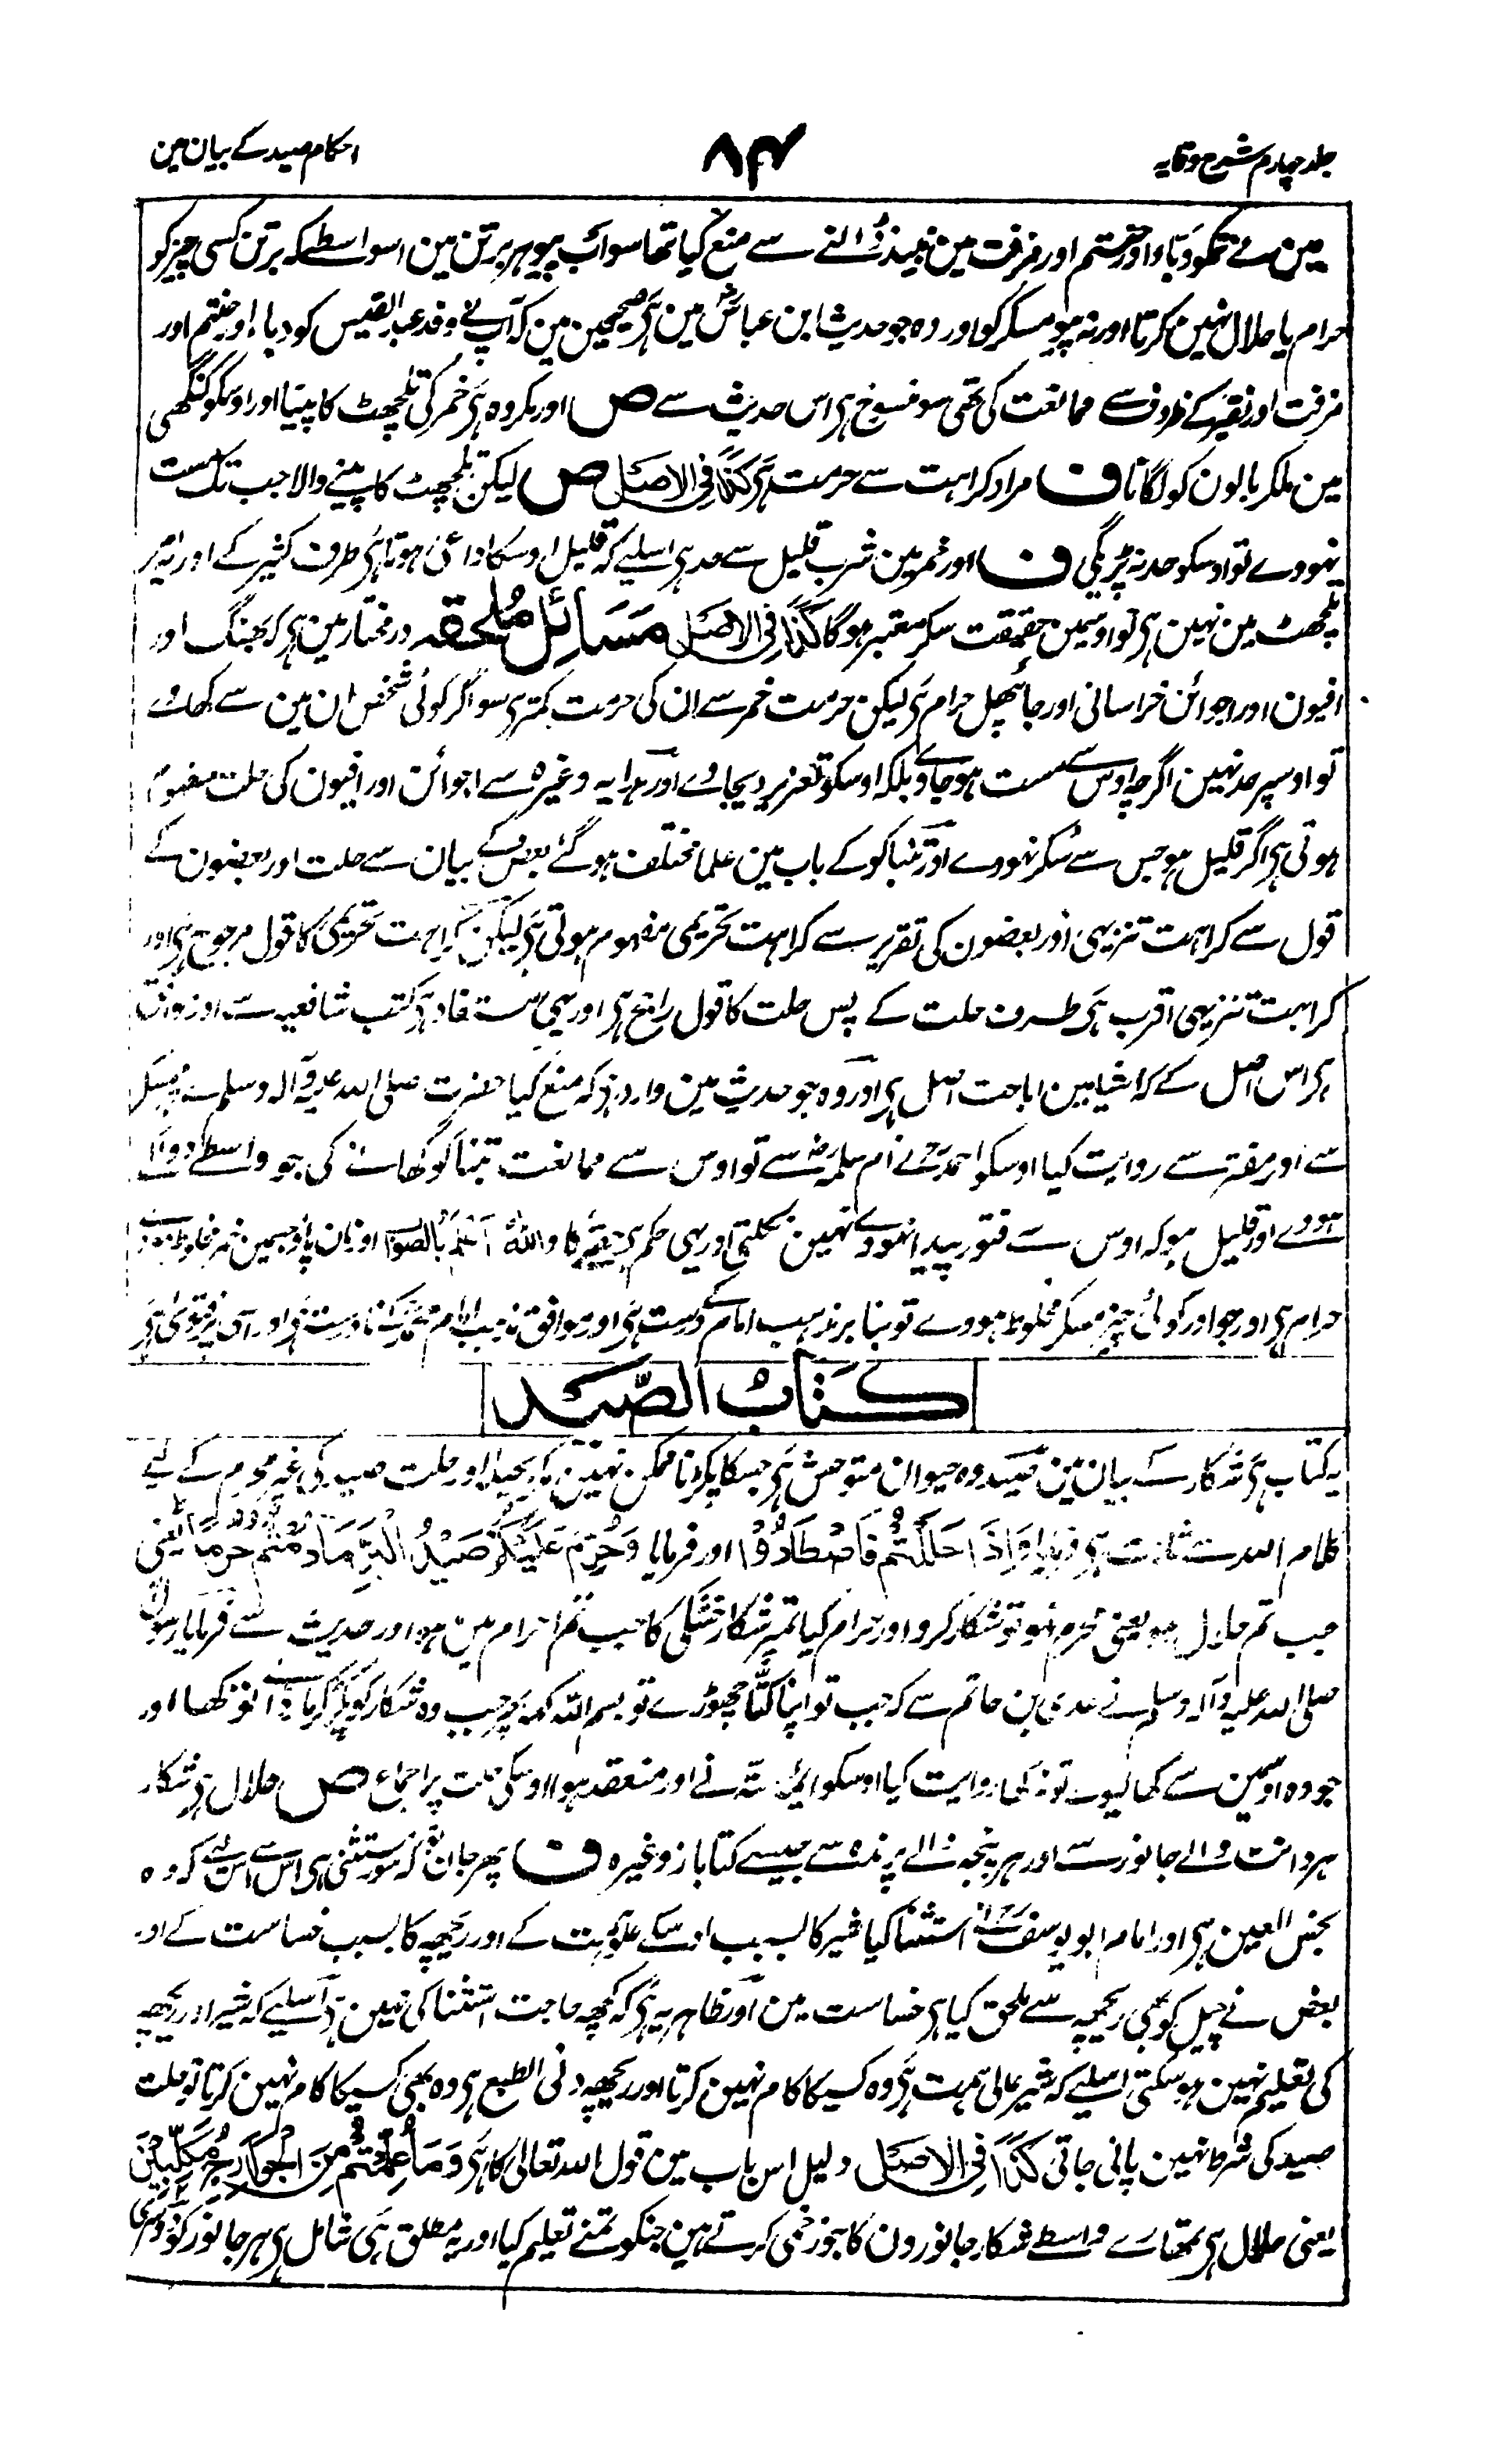 جلد چہارم شرح وقایہ
۸۴
احکام صید کے بیان مین
مین نے تمکو دبّا اور حنتم اور مزفت مین نبیذ ڈالنے سے منع کیا تھا سو اب پیو ہر برتن مین اسواسطے کہ برتن کسی چیز کو
حرام یا حلال نہین کرتا اور نہ پیو مسکر کو اور وہ جو حدیث ابن عباس مین ہی صحیحین مین کہ آپ نے وفد عبدالقیس کو دبا اور حنتم اور
مزفت اور نقیر کے ظروف سے ممانعت کی تھی سو منسوخ ہی اس حدیث سے ص اور مکروہ ہی خمر کی تلچھٹ کا پینا اور اوسکو کنگھی
مین ملکر بالون کو لگانا ف مراد کراہت سے حرمت ہی کذا فی الاصل ص لیکن تلچھٹ کا پینے والا جب تک مست
نہووے تو اوسکو حد نہ پڑیگی ف اور خمر مین شرب قلیل سے حد ہی اسلیے کہ قلیل اوسکا داعی ہوتا ہی طرف کثیر کے اور یہ امر
تلچھٹ مین نہین ہی تو اوسمین حقیقت سکر معتبر ہوگا کذا فی الاصل مَسَائِل مُلحقہ درمختار مین ہی کہ بھنگ اور
افیون اور اجوائن خراسانی اور جائپھل حرام ہی لیکن حرمت خمر سے ان کی حرمت کمتر ہی سو اگر کوئی شخص ان مین سے کھاوے
تو اوسپر حد نہین اگرچہ اوس سے مست ہو جاوے بلکہ اوسکو تعزیر دیجاوے اور ہدایہ وغیرہ سے اجوائن اور افیون کی حلت مفہوم
ہوتی ہی اگر قلیل ہو جس سے سُکر نہووے اور تنباکو کے باب مین علما مختلف ہو گئے بعض کے بیان سے حلت اور بعضون کے
قول سے کراہت تنزیہی اور بعضون کی تقریر سے کراہت تحریمی مفہوم ہوتی ہی لیکن کراہت تحریمی کا قول مرجوح ہی اور
کراہت تنزیہی اقرب ہی طرف حلت کے پس حلت کا قول راجح ہی اور یہی مستفاد ہی کتب شافعیہ سے اور موافق
ہی اس اصل کے کہ اشیا مین اباحت اصل ہی اور وہ جو حدیث مین وارد ہی کہ منع کیا حضرت صلی اللہ علیہ وآلہ وسلم نے مسکر
سے اور مفتر سے روایت کیا اوسکو احمد نے ام سلمہ سے تو اوس سے ممانعت تنباکو کھانے کی جو واسطے دوا کے
ہووے اور قلیل ہو کہ اوس سے فتور پیدا نہووے نہین نکلتی اور یہی حکم ہی حقے کا واللہ اعلم بالصواب اور نان پاؤ جسمین خمر مخلوط ہووے
حرام ہی اور جو اور کوئی چیز مسکر مخلوط ہووے تو بنا بر مذہب امام کے درست ہی اور موافق مذہب امام محمد کے نادرست ہی اور اسی پر فتویٰ ہی
کتاب الصَّید
یہ کتاب ہی شکار کے بیان مین صید وہ حیوان متوحش ہی جسکا پکڑنا ممکن نہین مگر بحیلہ اور حلت صید کی غیر محرم کے لیے
کلام اللہ سے ثابت ہی فرمایا وَاِذَا حَلَلْتُمْ فَاصْطَادُوْا اور فرمایا وَحُرِّمَ عَلَیْکُمْ صَیْدُ الْبَرِّ مَا دُمْتُمْ حُرُمًا یعنی
جب تم حلال ہو یعنی محرم نہو تو شکار کرو اور حرام کیا تمپر شکار خشکی کا جب تم احرام مین ہو اور حدیث سے فرمایا رسول
صلی اللہ علیہ وآلہ وسلم نے عدی بن حاتم سے کہ جب تو اپنا کُتّا چھوڑے تو بسم اللہ کہہ پھر جب وہ شکار کو پکڑ کر مارے تو کھا اور
جو وہ اوسمین سے کھا لیوے تو نہ کھا روایت کیا اوسکو ایمہ ستہ نے اور منعقد ہوا اوسکی حلت پر اجماع ص حلال ہی شکار
ہر دانت والے جانور سے اور ہر پنجہ والے پرندہ سے جیسے کتا باز وغیرہ ف پھر جان تو کہ سور مستثنی ہی اس سے اس لیے کہ وہ
نجس العین ہی اور امام ابو یوسف نے استثنا کیا شیر کا بسبب اوسکے علو ہمت کے اور ریچھ کا بسبب خساست کے اور
بعض نے چیل کو بھی ریچھ سے ملحق کیا ہی خساست مین اور ظاہر یہ ہی کہ کچھ حاجت استثنا کی نہین ہی اسلیے کہ شیر اور ریچھ
کی تعلیم نہین ہو سکتی اسلیے کہ شیر عالی ہمت ہی وہ کسیکا کام نہین کرتا اور ریچھ دنی الطبع ہی وہ بھی کسیکا کام نہین کرتا تو حلت
صید کی شرط نہین پائی جاتی کذا فی الاصل دلیل اس باب مین قول اللہ تعالیٰ کا ہی وَمَا عَلَّمْتُمْ مِنَ الْجَوَارِحِ مُکَلِّبِیْنَ
یعنی حلال ہی تمھارے واسطے شکار جانورون کا جو زخمی کرتے ہین جنکو تمنے تعلیم کیا اور یہ مطلق ہی شامل ہی ہر جانور کو